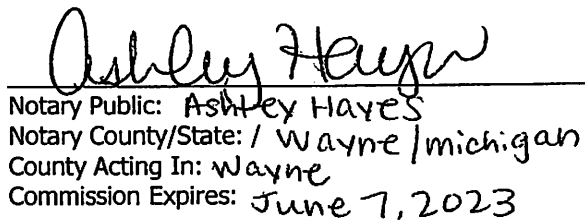 Ashley Hayes
Notary Public: Ashley Hayes
Notary County/State: / Wayne/michigan
County Acting In: Wayne
Commission Expires: June 7, 2023